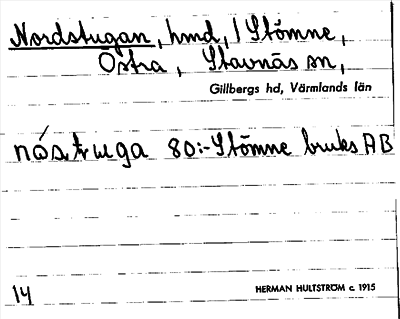 Nordstugan, hmd, / Stömne,
Östra, Stavnäs sn,
Gillbergs hd, Värmlands län
80:- Stömne bruks AB
14
HERMAN HULTSTRÖM c. 1915